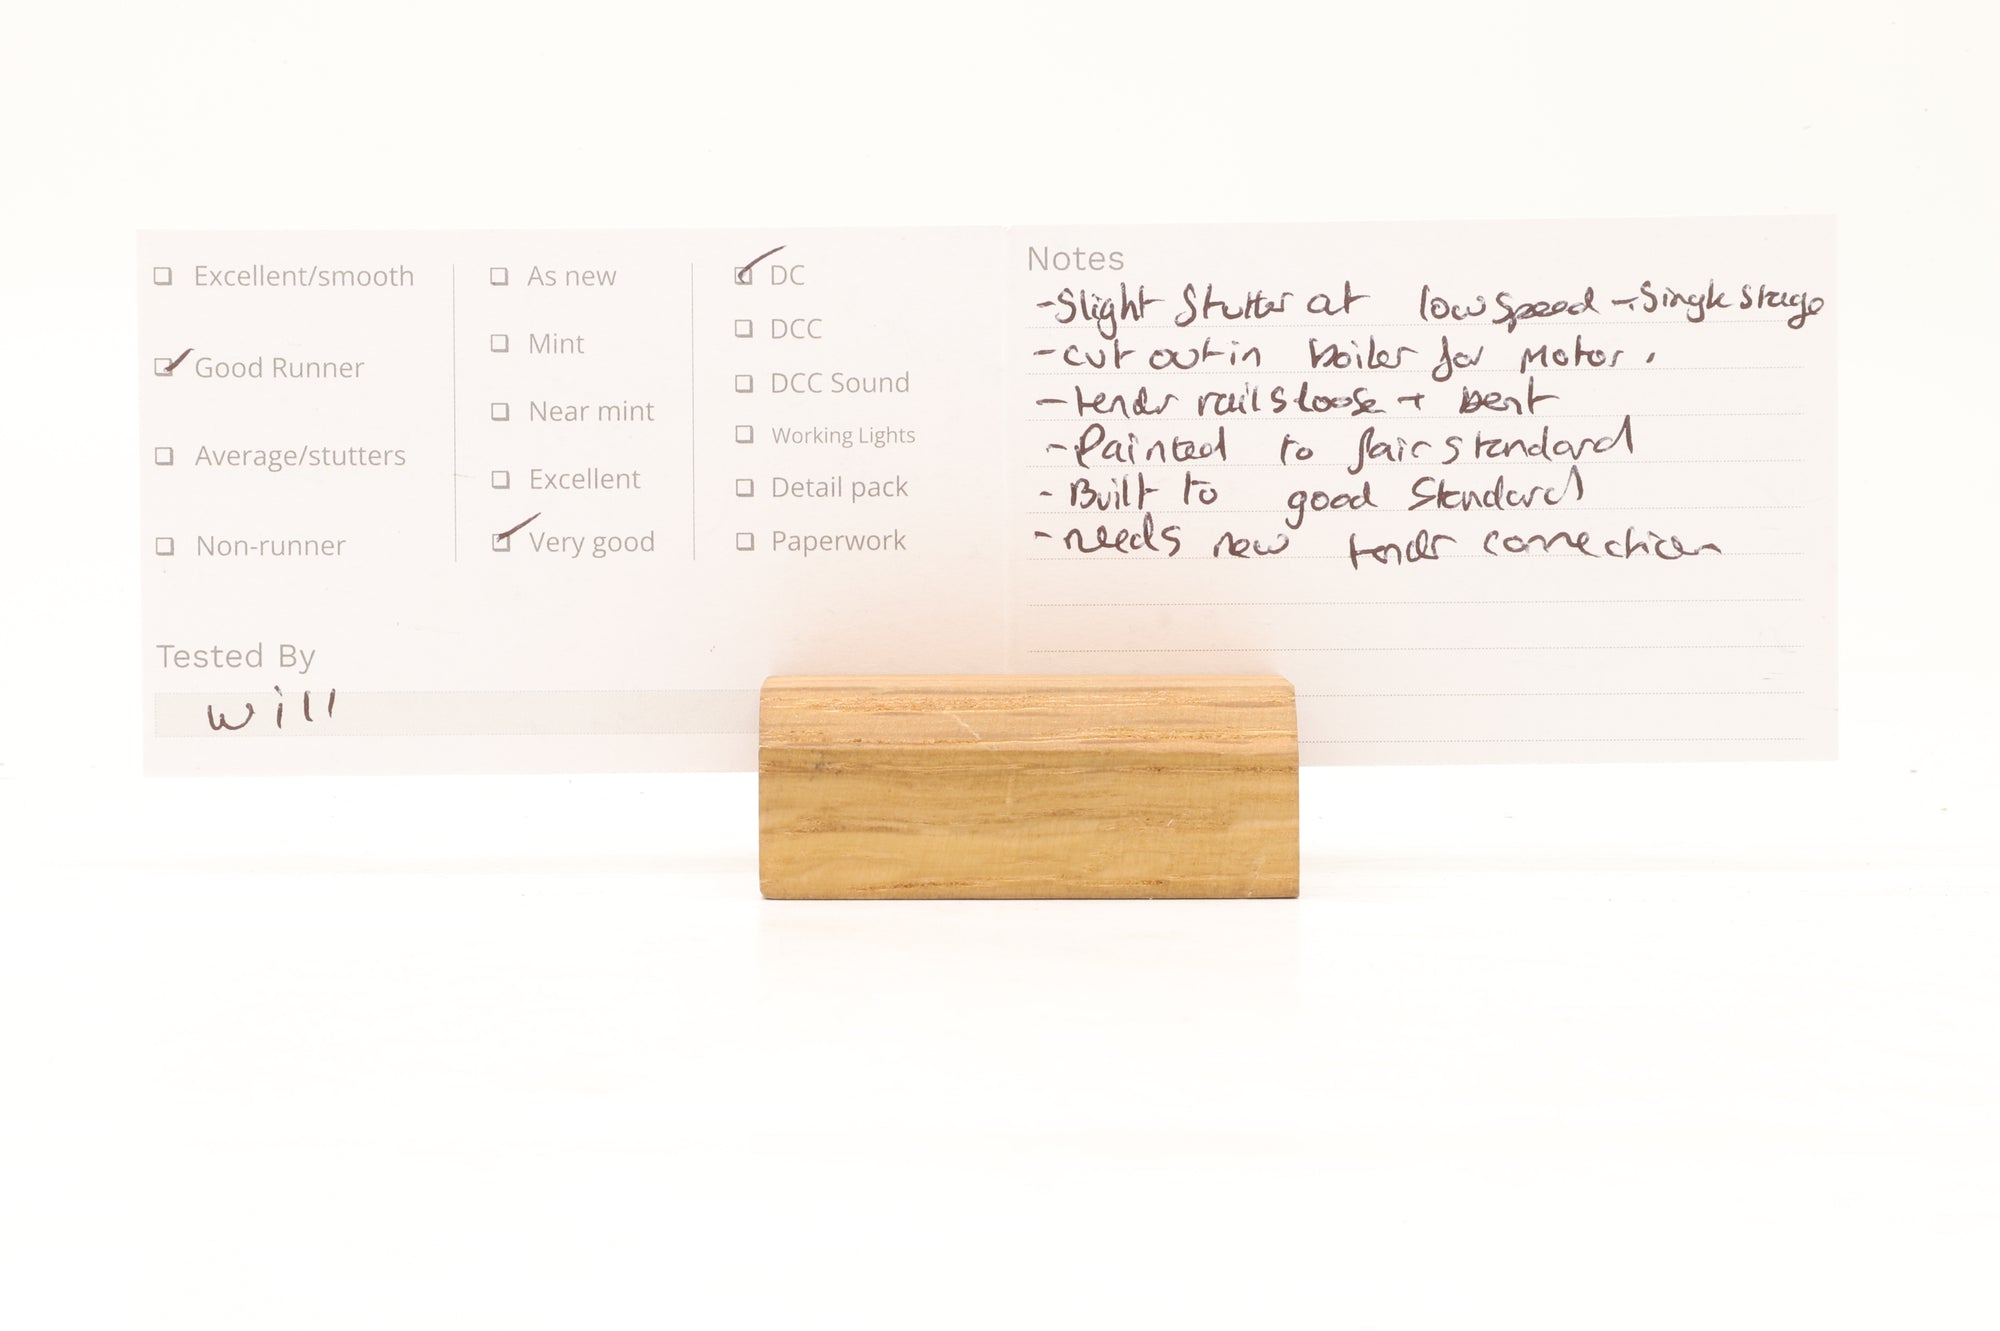 Excellent/smooth
Good Runner
Average/stutters
Non-runner
As new
Mint
Near mint
Excellent
Very good
DC
DCC
DCC Sound
Working Lights
Detail pack
Paperwork
Tested By
will
Notes
- Slight Stutter at low speed - Single stage
- cut out in boiler for Motor.
- tender rails loose + bent
- Painted to fair standard
- Built to good Standard
- needs new tender connection